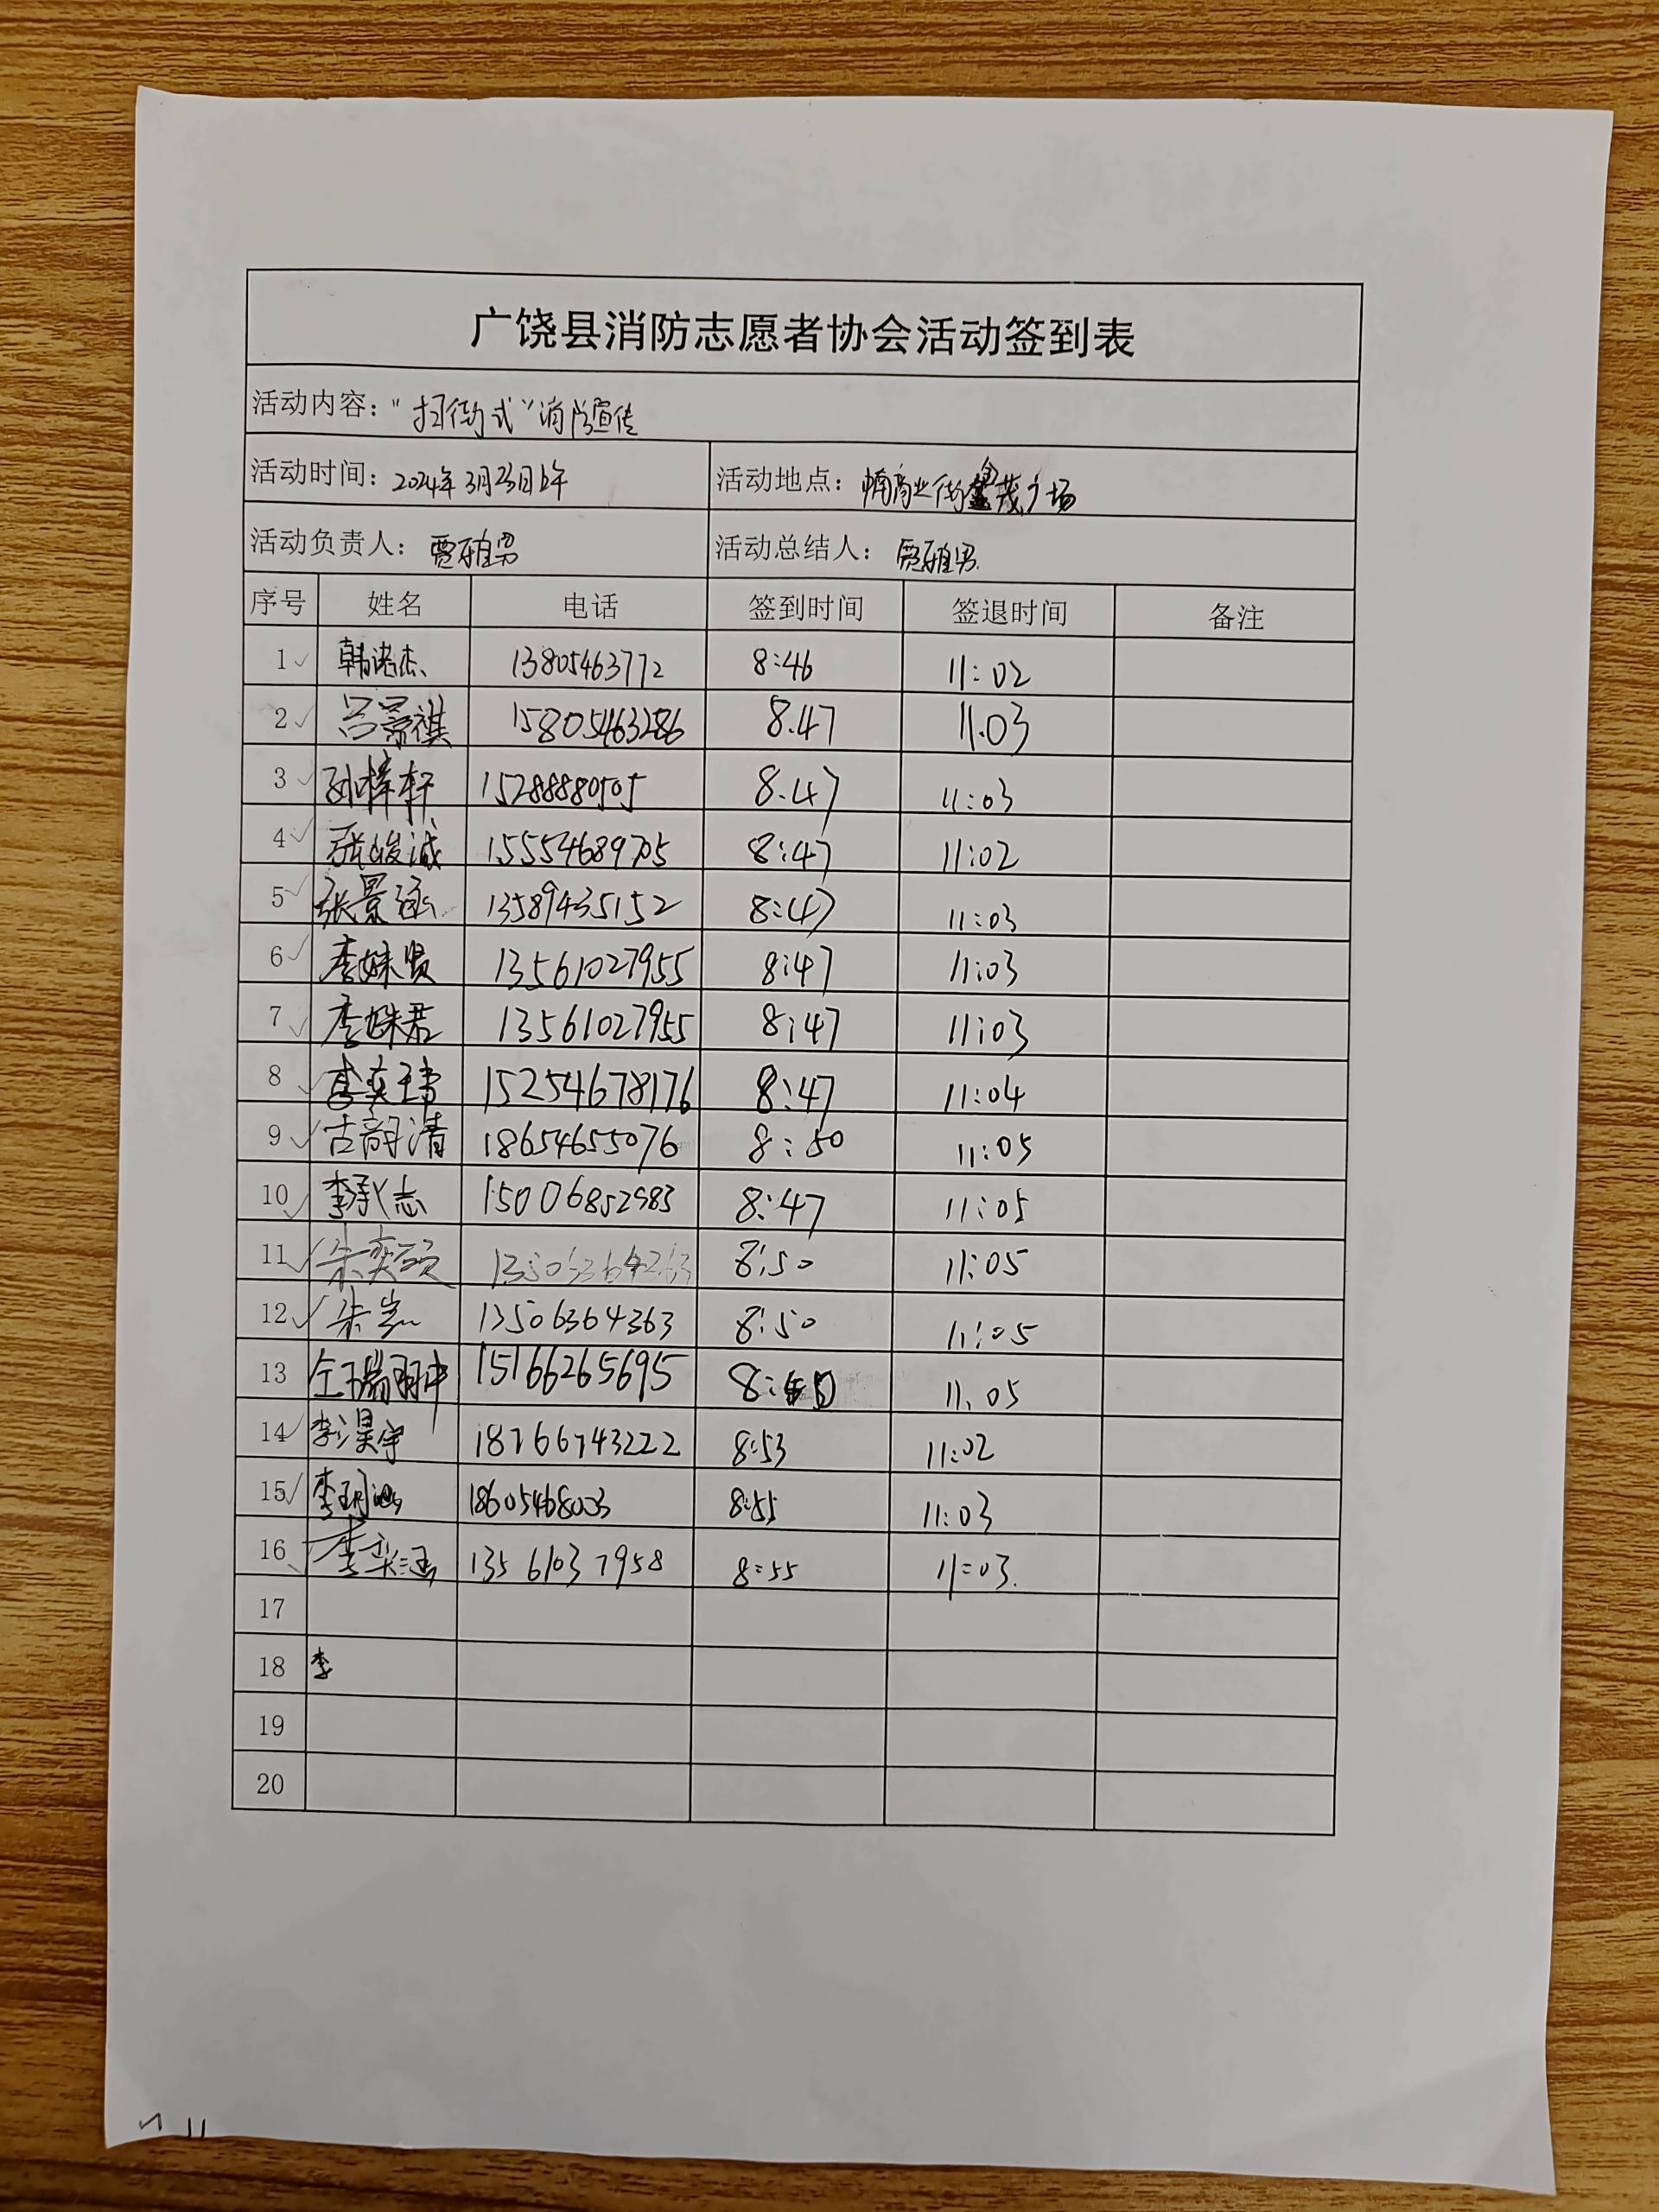 广饶县消防志愿者协会活动签到表
活动内容："扫街式"消防宣传
活动时间：2024年3月23日上午 活动地点：商业街鑫茂广场
活动负责人：贾雅男 活动总结人：贾雅男
序号 姓名 电话 签到时间 签退时间 备注
1 韩诺杰 13805463772 8:46 11:02
2 吕景祺 15805463286 8.47 11.03
3 孙梓轩 15288880505 8.47 11:03
4 张峻诚 15554689705 8:47 11:02
5 张景涵 13589435152 8:47 11:03
6 李姝贤 13561027955 8:47 11:03
7 李姝君 13561027955 8:47 11:03
8 李奕玮 15254678176 8:47 11:04
9 古韵清 18654655076 8:50 11:05
10 李承志 15006852983 8:47 11:05
11 朱奕硕 8:50 11:05
12 朱 13506364363 8:50 11:05
13 仝瑞翀 15166265695 8:50 11.05
14 李淏宇 18766743222 8:53 11:02
15 李玥 18605468003 8:55 11:03
16 李奕涵 13561037958 8:55 11:03.
17
18 李
19
20